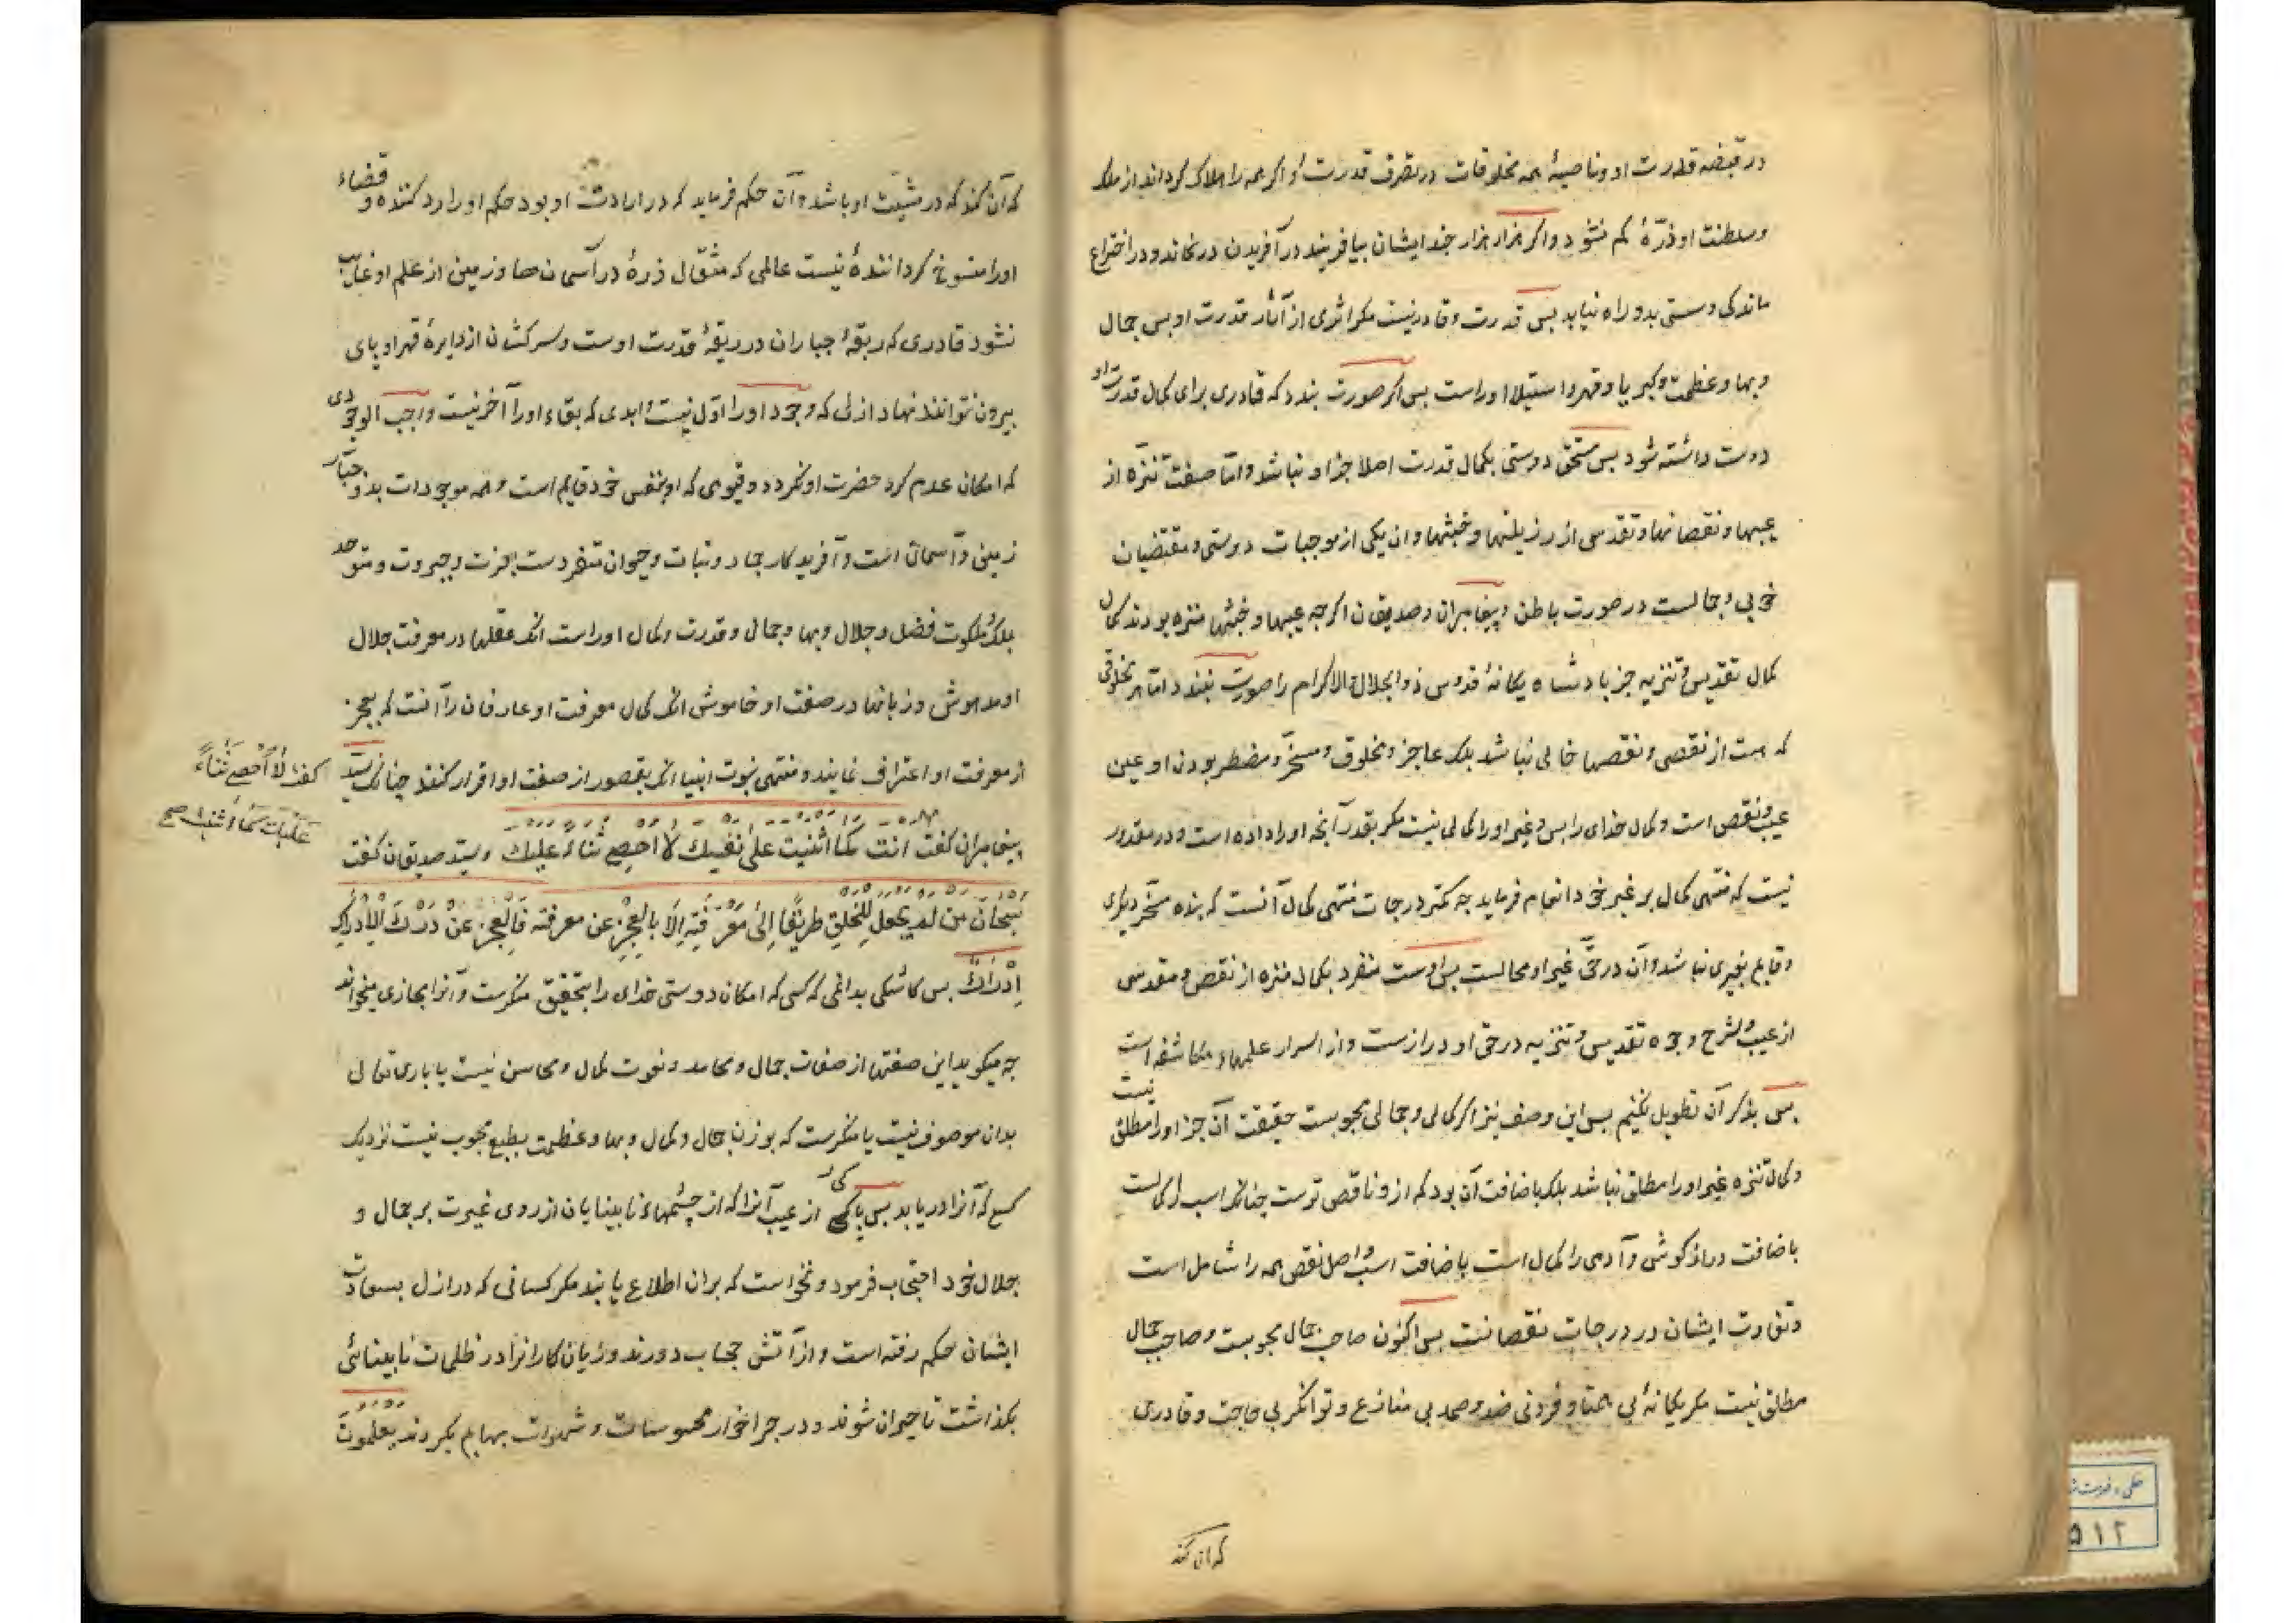 در قبضه قدرت او و ناصیهٔ همه مخلوقات در تصرف قدرت او اکر همه را هلاک کرداند از ملک
و سلطنت او ذرّهٔ کم نشود و اکر هزار هزار چند ایشان بیافریند در آفریدن درنماند و در اختراع
ماندکی و سستی بدو راه نیابد بس قدرت و قادر نیست مکر اثری از آثار قدرت او بس جمال
و بها و عظمت و کبریا و قهر و استیلا اوراست بس اکر صورت بندد که قادری برای کمال قدرت او
دوست داشته شود بس مستحق دوستی بکمال قدرت اصلا جز او نباشد و امّا صفت تنزّه از
عیبها و نقصانها و تقدس از رزیلتها و خبثها و ان یکی از موجبات دوستی و مقتضیان
خوبی و جمالست در صورت باطن و پیغامبران و صدیقان اکرچه عیبها و خبثها منزه بودند کمال
کمال تقدیس و تنزیه جز بادشاه یکانهٔ قدوس ذو الجلال و الاکرام را صورت نبندد امّا هر مخلوقی
که هست از نقصی و نقصها خالی نباشد بلکه عاجز و مخلوق و مسخّر و مضطر بودن او عین
عیب و نقص است و کمال خدای را بس و غیر او را کمالی نیست مکر بقدر آنچه او را داده است و در مقدور
نیست که منتهی کمال بر غیر خود انعام فرماید چه کمتر درجات منتهی کمال آنست که بنده مسخّر دیکری
و قایم بغیری نباشد و آن در حقّ غیر او محالست بس اوست منفرد بکمال منزه از نقص و مقدس
از عیب و شرح وجوه تقدیس و تنزیه در حق او درازست و از اسرار علمهاء مکاشفه است
بس بذکر آن تطویل نکنیم بس این وصف نیز اکر کمالی و جمالی محبوبست حقیقت آن جز او را مطلق نیست
و کمال تنزه غیر او را مطلق نباشد بلکه باضافت آن بود که ازو ناقص ترست چنانکه اسب را کمالست
باضافت درازکوش و آدمی را کمال است باضافت اسب و اصل نقص همه را شامل است
و تفاوت ایشان در درجات نقصانست بس اکنون صاحب جمال محبوبست و صاحب جمال
مطلق نیست مکر یکانهٔ بی همتا و فردی بی ضد و صمد بی منازع و توانکر بی حاجت و قادری
که ان کند
که آن کند که در مشیّت او باشد و آن حکم فرماید که در ارادت او بود حکم او را رد کننده و قضاء
او را منسوخ کردانندهٔ نیست عالمی که مثقال ذرهٔ در آسمانها و زمین از علم او غایب
نشود قادری که ربقهٔ جباران در ربقهٔ قدرت اوست و سرکشان از دایرهٔ قهر او پای
بیرون نتوانند نهاد ازلی که وجود او را اوّل نیست و ابدی که بقاء او را آخر نیست واجب الوجودی
که امکان عدم کرد حضرت او نکردد و قیومی که او بنفس خود قایم است و همه موجودات بدو جبّار
زمین و آسمان است و آفریدکار جماد و نبات و حیوان متفردست بعزت و جبروت و متوحد
بملک و ملکوت فضل و جلال و بها و جمال و قدرت و کمال اوراست انکه عقلها در معرفت جلال
او مدهوش و زبانها در صفت او خاموش انکه کمال معرفت او عارفان را آنست که بعجز
از معرفت او اعتراف نمایند و منتهی نبوت انبیا انکه بقصور از صفت او اقرار کنند چنانکه سیّد
کفت لَا أُحْصِي ثَنَاءً
عَلَيْكَ كَمَا أَثْنَيْتَ صح
پیغامبران کفت انت كما اثنيت على نفسك لا احصي ثناء عليك و سیّد صدیقان کفت
سُبْحَانَ مَنْ لَمْ يَجْعَلْ لِلْخَلْقِ طَرِيقًا إِلَى مَعْرِفَتِهِ إِلَّا بِالْعَجْزِ عن معرفته فَالْعَجْزُ عَنْ دَرْكِ الْإِدْرَاكِ
إِدْرَاكٌ بس کاشکی بدانمی که کسی که امکان دوستی خدای را بتحقیق منکرست و آنرا مجازی میخواند
چه میکوید این صفتها از صفات جمال و محامد و نعوت کمال و محاسن نیست یا باری تعالی
بدان موصوف نیست یا منکرست که بودن جمال و کمال و بها و عظمت بطبع محبوب نیست نزدیک
کسی که آنرا دریابد بس پاکی از عیب آنرا که از چشمهاء نابینایان از روی غیرت بر جمال و
جلال خود احتجاب فرمود و نخواست که بران اطلاع یابند مکر کسانی که در ازل بسعادت
ایشان حکم رفته است و از آتش حجاب دورند و زیان کارانرا در ظلمات نابینائی
بکذاشت تا حیران شوند و در چراخوار محسوسات و شهوات بهایم بکردند يعلمون